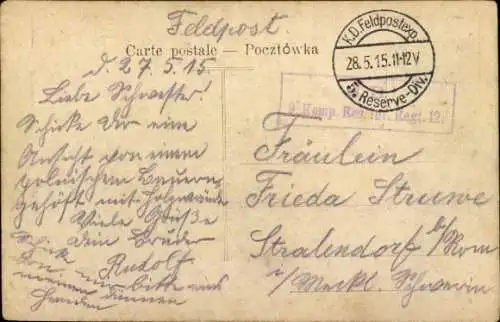 Feldpost.
Carte postale – Pocztówka
K.D. Feldpostexp.
28.5.15.11-12V
5. Reserve-Div.
Komp. Res. Inf. Regt. 12.
d. 27.5.15.
Liebe Schwester!
Schicke Dir eine
Ansicht von einem
polnischem Bauern-
gehöft mit Holzwände
Viele Grüße
Dein Bruder
Rudolf
Schicke
mir bitte ein
meiner dünnen
Hemden
Fräulein
Frieda Struwe
Stralendorf b/
i/Meckl. Schwerin